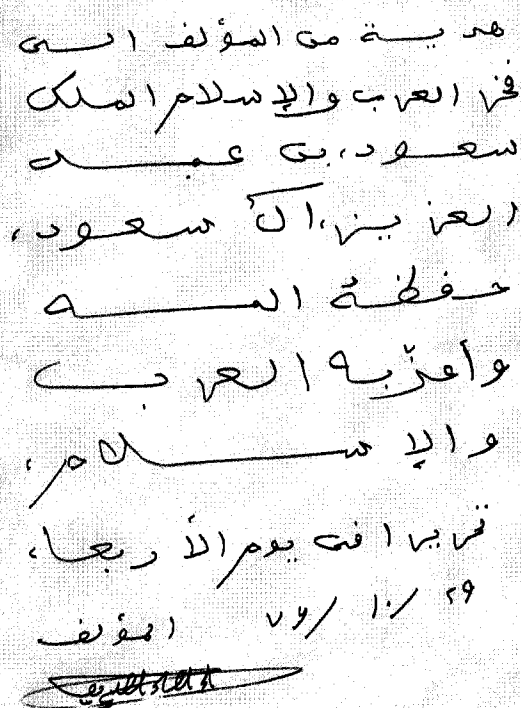 هديــة من المؤلف الــى
فخر العرب والإسلام الملك
سعود، بن عبــــد
العزيز، آل سعود،
حفظهُ اللــــه
وأعزّ به العرب
والإســــلام،
تحريرا فى يوم الأربعا،
٢٩ / ١٠ / ٧٦ المؤلف